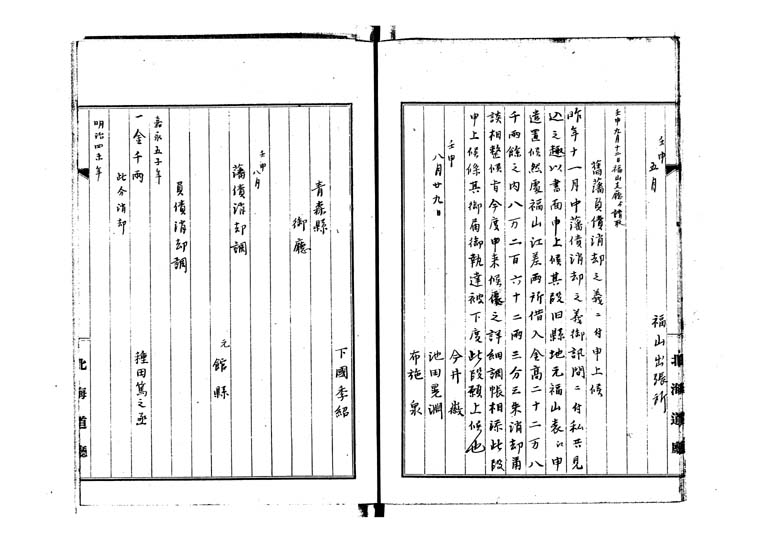 壬申
五月
福山出張所
壬申九月十二日福山支廳ゟ請取
舊藩負債消却之義ニ付申上候
昨年十一月中藩債消却之義御訊問ニ付私共見
込之趣以書面申上候其段旧縣地元福山表江申
遣置候然處福山江差両所借入金高二十二万八
千両餘之内八万二百六十二両三分三朱消却甫
談相整候旨今度申来候儘之詳細調帳相添此段
申上候條其御局御執達被下度此段願上候也
壬申
八月廿九日
今井徴
池田晃淵
布施泉
北海道廳
下國季紹
青森縣
御廳
壬申八月
藩債消却調
元
館縣
負債消却調
嘉永五子年
一金千両
種田篤之丞
此分消却
明治四未年
北海道廳